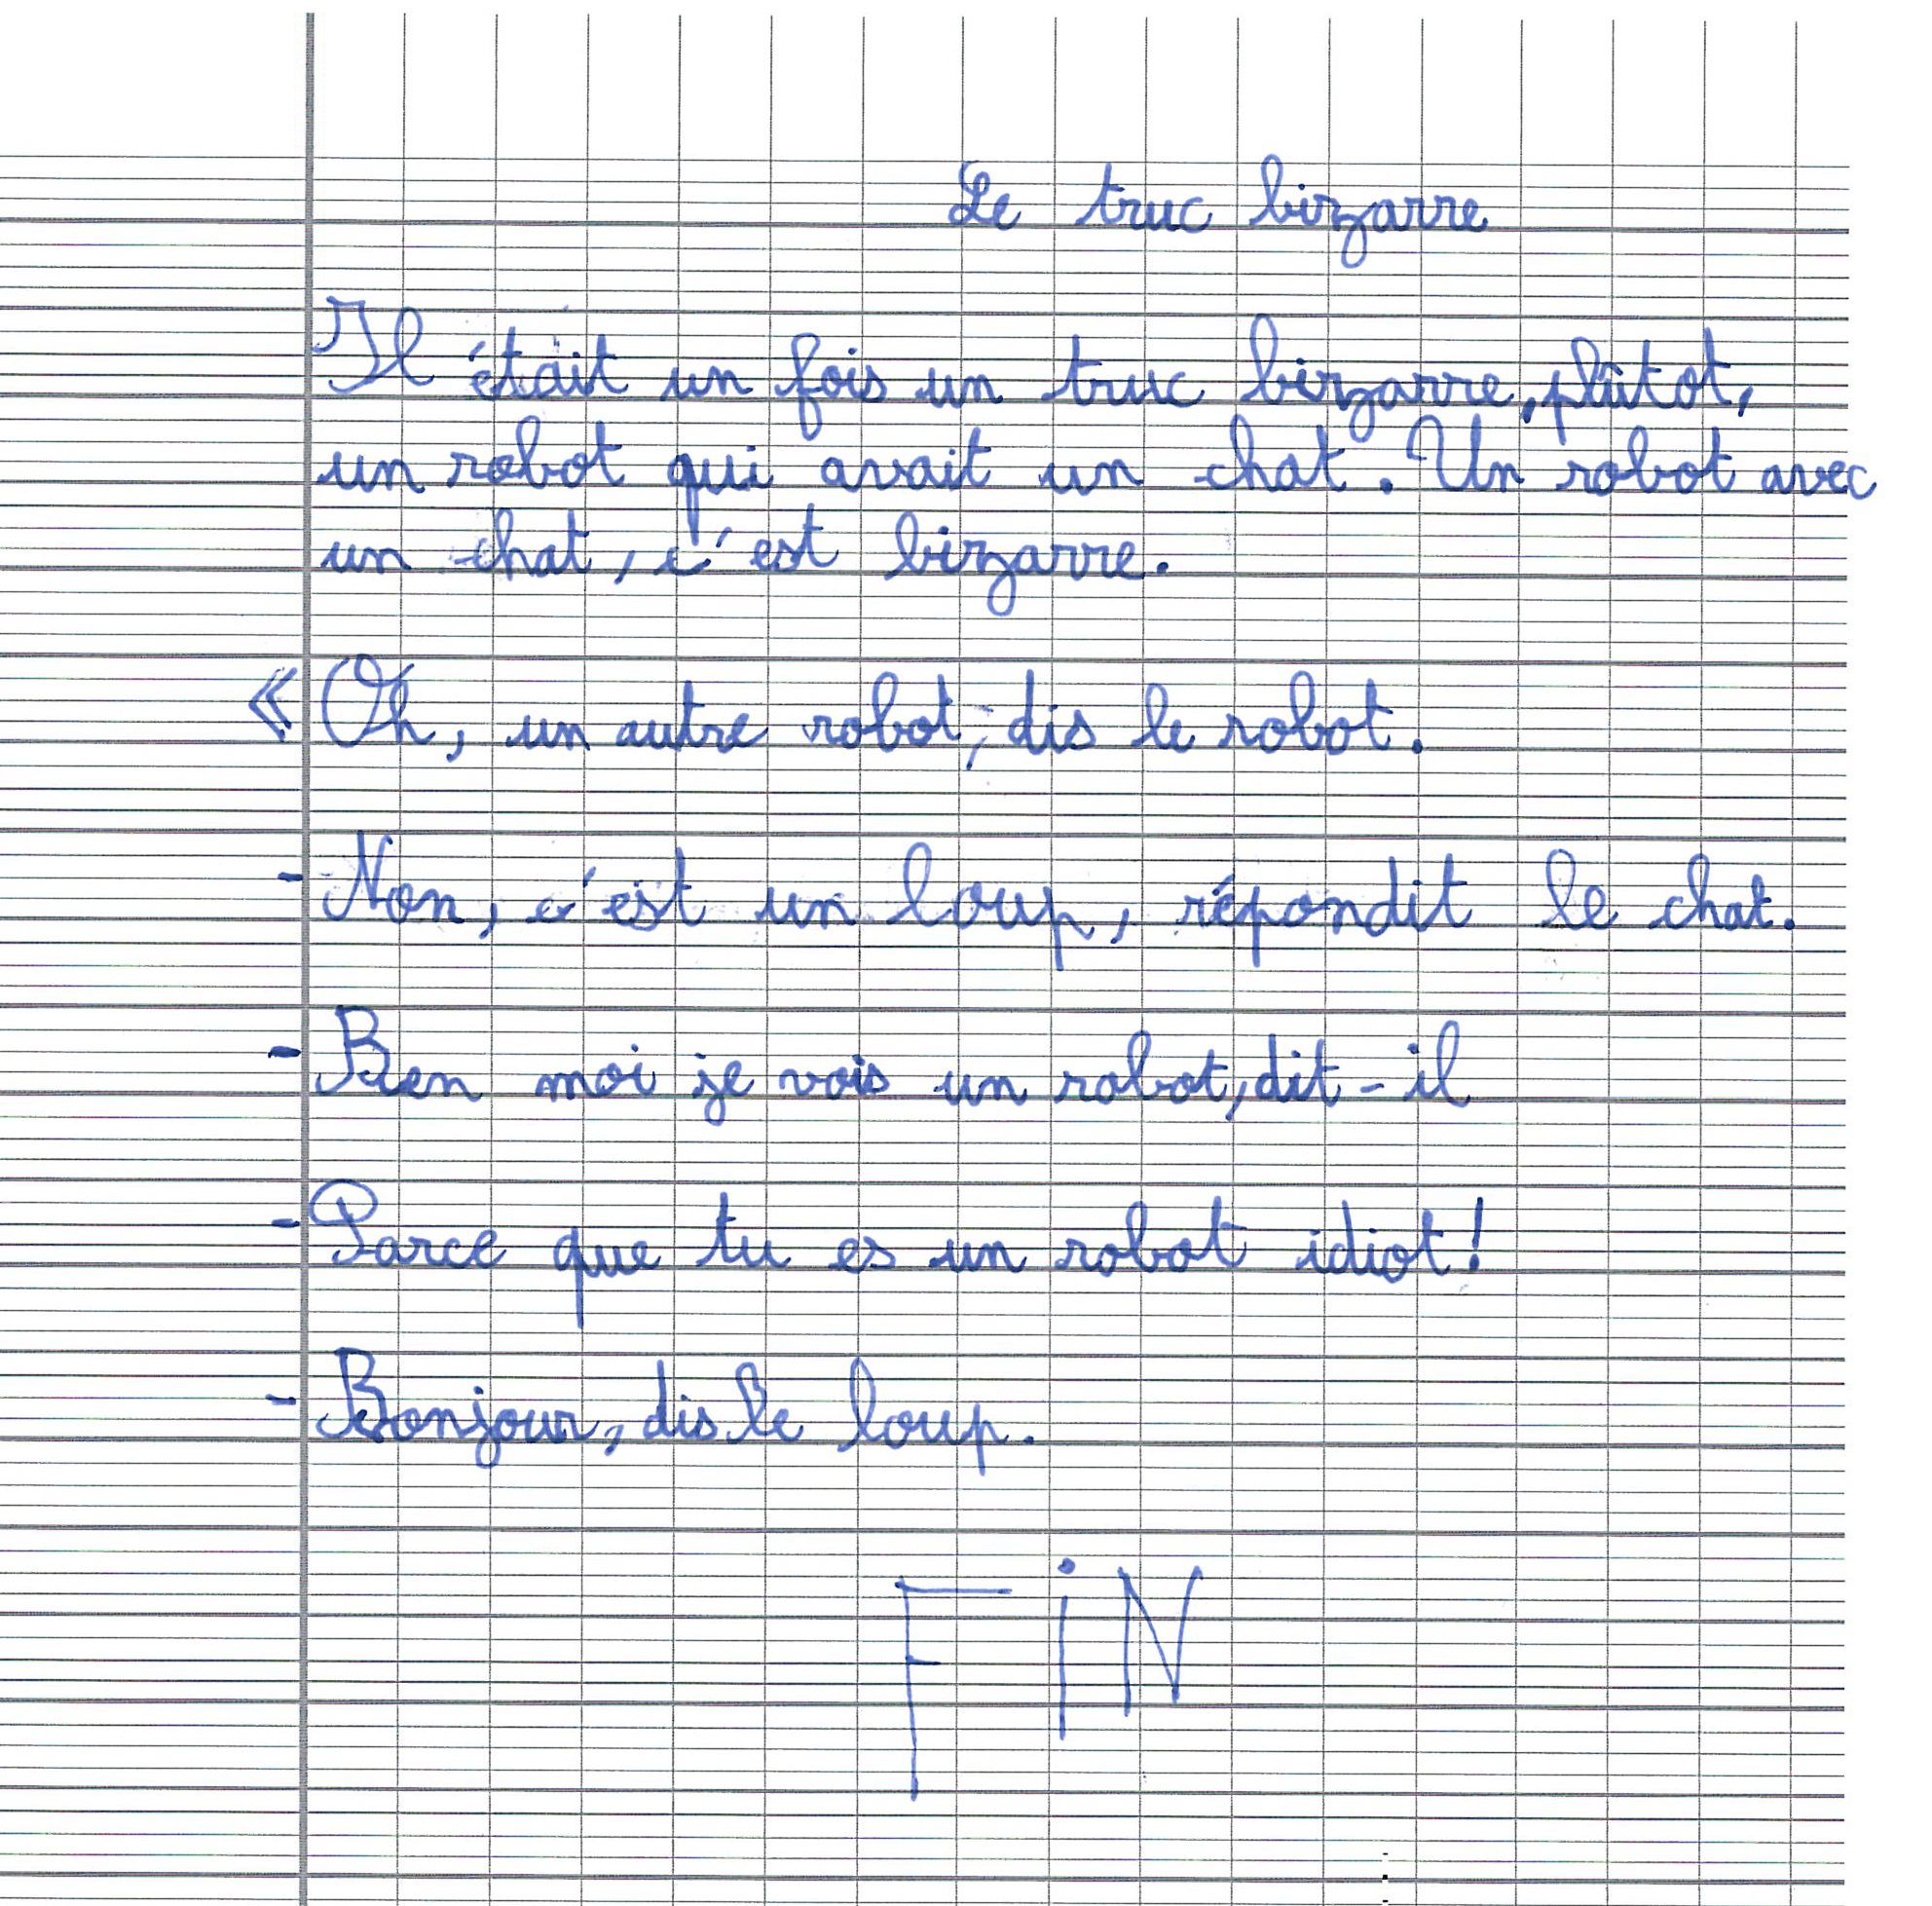 Le truc bizarre
Il était un fois un truc bizarre, plûtot,
un robot qui avait un chat. Un robot avec
un chat, c'est bizarre.
« Oh, un autre robot, dis le robot.
- Non, c'est un loup, répondit le chat.
- Ben moi je vois un robot, dit-il
- Parce que tu es un robot idiot!
- Bonjour, dis le loup.
FiN